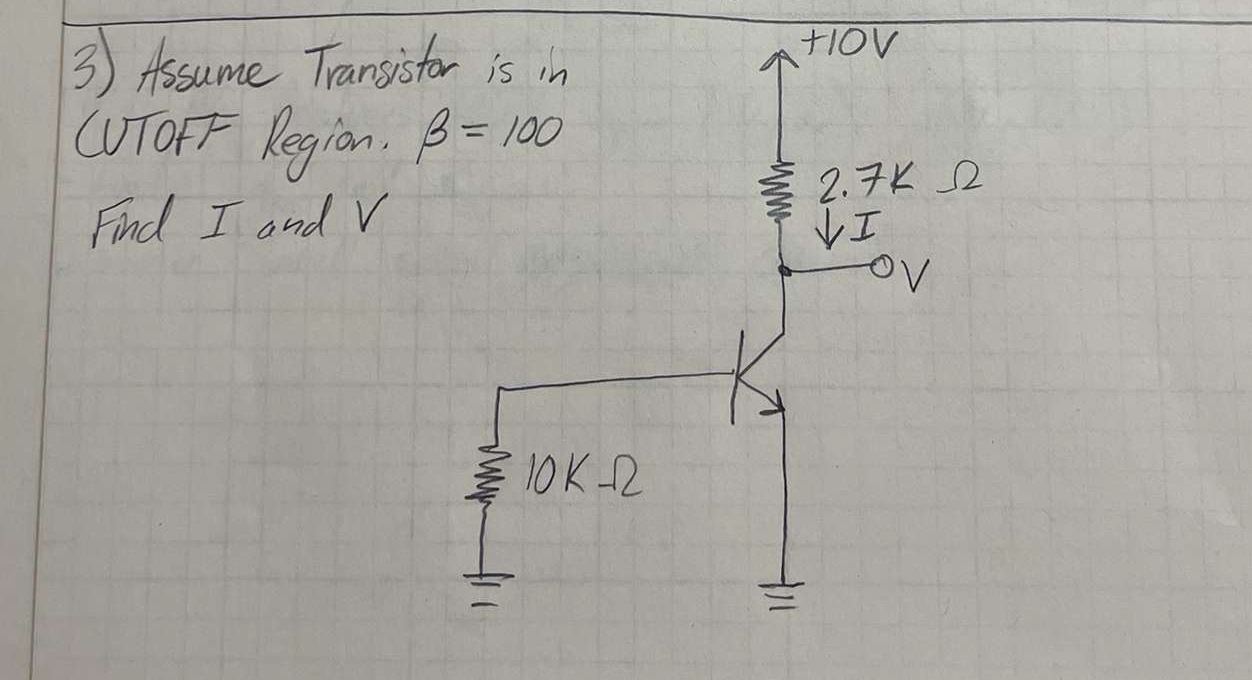 3) Assume Transistor is in
CUTOFF Region. β = 100
Find I and V
+10V
2.7K Ω
↓ I
V
10K Ω